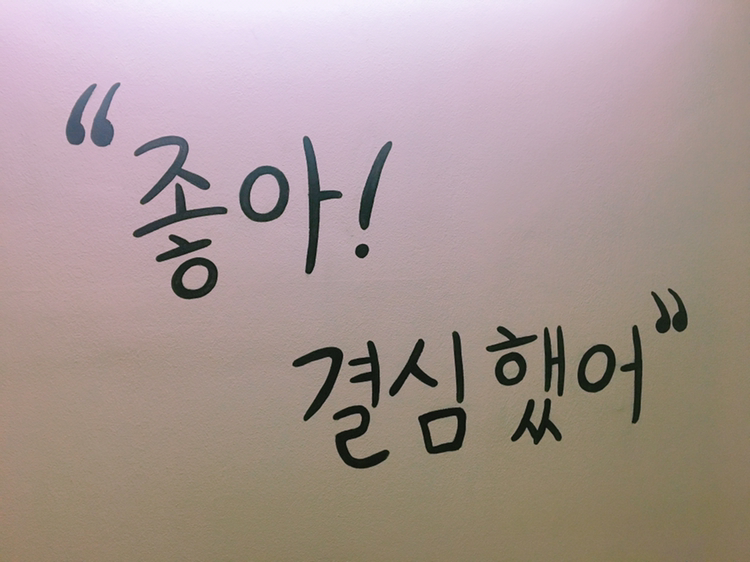 “좋아!
결심했어”